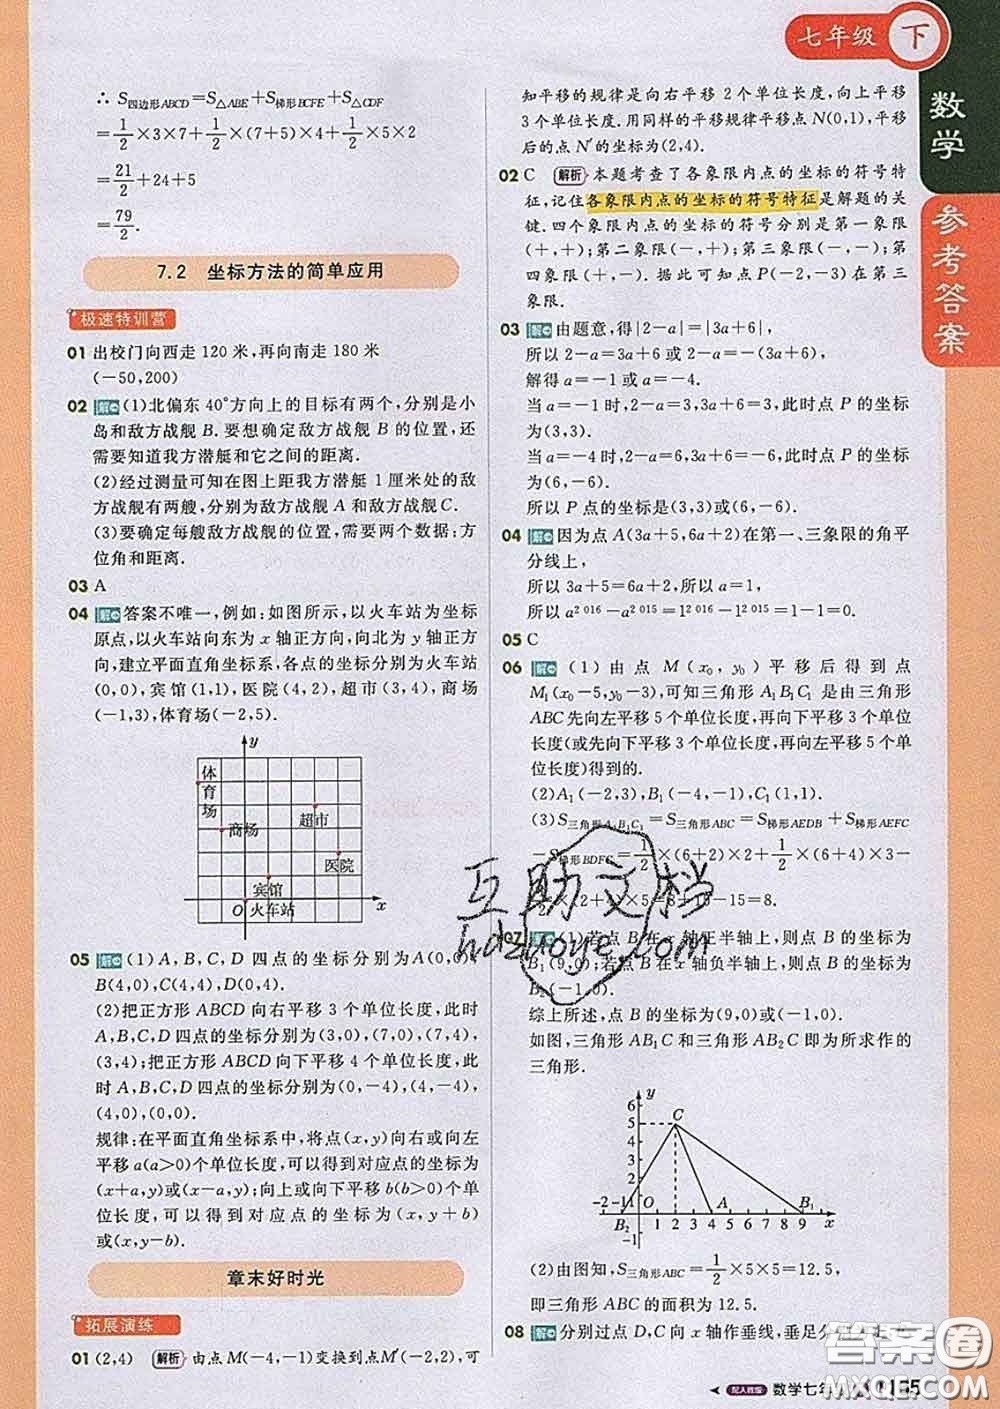 七年级 下
数学
参考答案
∴ S四边形ABCD=S△ABE+S梯形BCFE+S△CDF
=1/2×3×7+1/2×(7+5)×4+1/2×5×2
=21/2+24+5
=79/2.
7.2 坐标方法的简单应用
极速特训营
01 出校门向西走 120 米,再向南走 180 米
(-50,200)
02 解 (1)北偏东 40°方向上的目标有两个,分别是小
岛和敌方战舰 B.要想确定敌方战舰 B 的位置,还
需要知道我方潜艇和它之间的距离.
(2)经过测量可知在图上距我方潜艇 1 厘米处的敌
方战舰有两艘,分别为敌方战舰 A 和敌方战舰 C.
(3)要确定每艘敌方战舰的位置,需要两个数据:方
位角和距离.
03 A
04 解 答案不唯一,例如:如图所示,以火车站为坐标
原点,以火车站向东为 x 轴正方向,向北为 y 轴正方
向,建立平面直角坐标系,各点的坐标分别为火车站
(0,0),宾馆(1,1),医院(4,2),超市(3,4),商场
(-1,3),体育场(-2,5).
y
体育场
超市
商场
医院
宾馆
O 火车站 x
05 解 (1)A,B,C,D 四点的坐标分别为A(0,0),
B(4,0),C(4,4),D(0,4).
(2)把正方形 ABCD 向右平移 3 个单位长度,此时
A,B,C,D 四点的坐标分别为(3,0),(7,0),(7,4),
(3,4);把正方形 ABCD 向下平移 4 个单位长度,此
时 A,B,C,D 四点的坐标分别为(0,-4),(4,-4),
(4,0),(0,0).
规律:在平面直角坐标系中,将点(x,y)向右或向左
平移 a(a>0)个单位长度,可以得到对应点的坐标为
(x+a,y)或(x-a,y);向上或向下平移 b(b>0)个单
位长度,可以得到对应点的坐标为(x,y+b)
或(x,y-b).
章末好时光
拓展演练
01 (2,4) 解析 由点 M(-4,-1)变换到点M′(-2,2),可
知平移的规律是向右平移 2 个单位长度,向上平移
3 个单位长度.用同样的平移规律平移点 N(0,1),平移
后的点 N′的坐标为(2,4).
02 C 解析 本题考查了各象限内点的坐标的符号特
征,记住各象限内点的坐标的符号特征是解题的关
键.四个象限内点的坐标的符号分别是第一象限
(+,+);第二象限(-,+);第三象限(-,-);第
四象限(+,-).据此可知点 P(-2,-3)在第三
象限.
03 解 由题意,得|2-a|=|3a+6|,
所以 2-a=3a+6 或 2-a=-(3a+6),
解得 a=-1 或 a=-4.
当 a=-1 时,2-a=3,3a+6=3,此时点 P 的坐标
为(3,3).
当 a=-4 时,2-a=6,3a+6=-6,此时点 P 的坐标
为(6,-6).
所以 P 点的坐标为(3,3)或(6,-6).
04 解 因为点 A(3a+5,6a+2)在第一、三象限的角平
分线上,
所以 3a+5=6a+2,所以 a=1,
所以 a^2 016-a^2 015=1^2 016-1^2 015=1-1=0.
05 C
06 解 (1)由点 M(x₀,y₀)平移后得到点
M₁(x₀-5,y₀-3),可知三角形 A₁B₁C₁ 是由三角形
ABC先向左平移 5 个单位长度,再向下平移 3 个单位
长度(或先向下平移 3 个单位长度,再向左平移 5 个单
位长度)得到的.
(2)A₁(-2,3),B₁(-4,-1),C₁(1,0).
(3)S三角形A₁B₁C₁=S三角形ABC=S梯形AEDB+S梯形AEFC
-S梯形BDFC=1/2×(6+2)×2+1/2×(6+4)×3-
1/2×(2+4)×5=8+15-15=8.
07 解 (1)若点 B 在 x 轴正半轴上,则点 B 的坐标为
B₁(9,0);若点 B 在 x 轴负半轴上,则点 B 的坐标为
B₂(-1,0).
综上所述,点 B 的坐标为(9,0)或(-1,0).
如图,三角形 AB₁C 和三角形 AB₂C 即为所求作的
三角形.
y
6
5
4
3
2
1
C
-2 -1 O A B₁
B₂ 1 2 3 4 5 6 7 8 9 x
-1
(2)由图知,S三角形ABC=1/2×5×5=12.5,
即三角形 ABC 的面积为 12.5.
08 解 分别过点 D,C 向 x 轴作垂线,垂足分别
配人教版 数学七年
互助文档
hdzuoye.com
答案圈